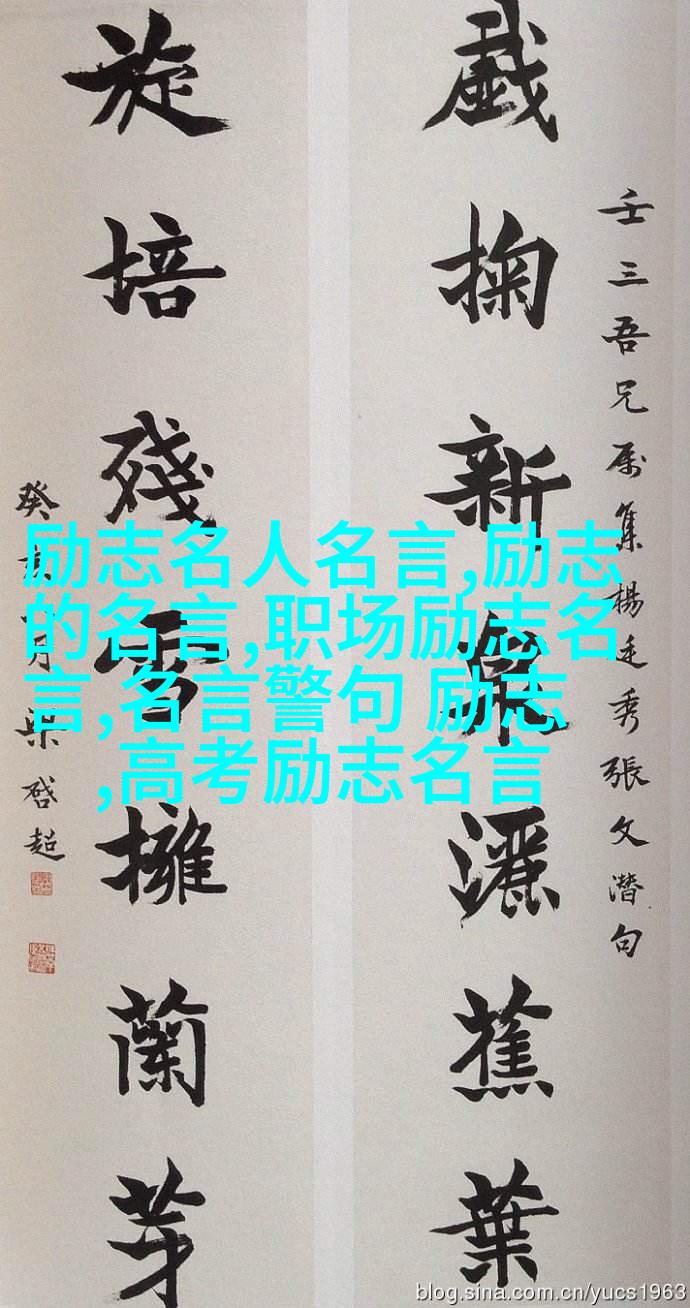 壬三吾兄属集楊廷秀張文潛句
戲掬新泉灑蕉葉
旋培殘雪擁蘭芽
癸亥 月梁啓超
励志名人名言,励志
的名言,职场励志名
言,名言警句 励志
,高考励志名言
blog.sina.com.cn/yucs1963